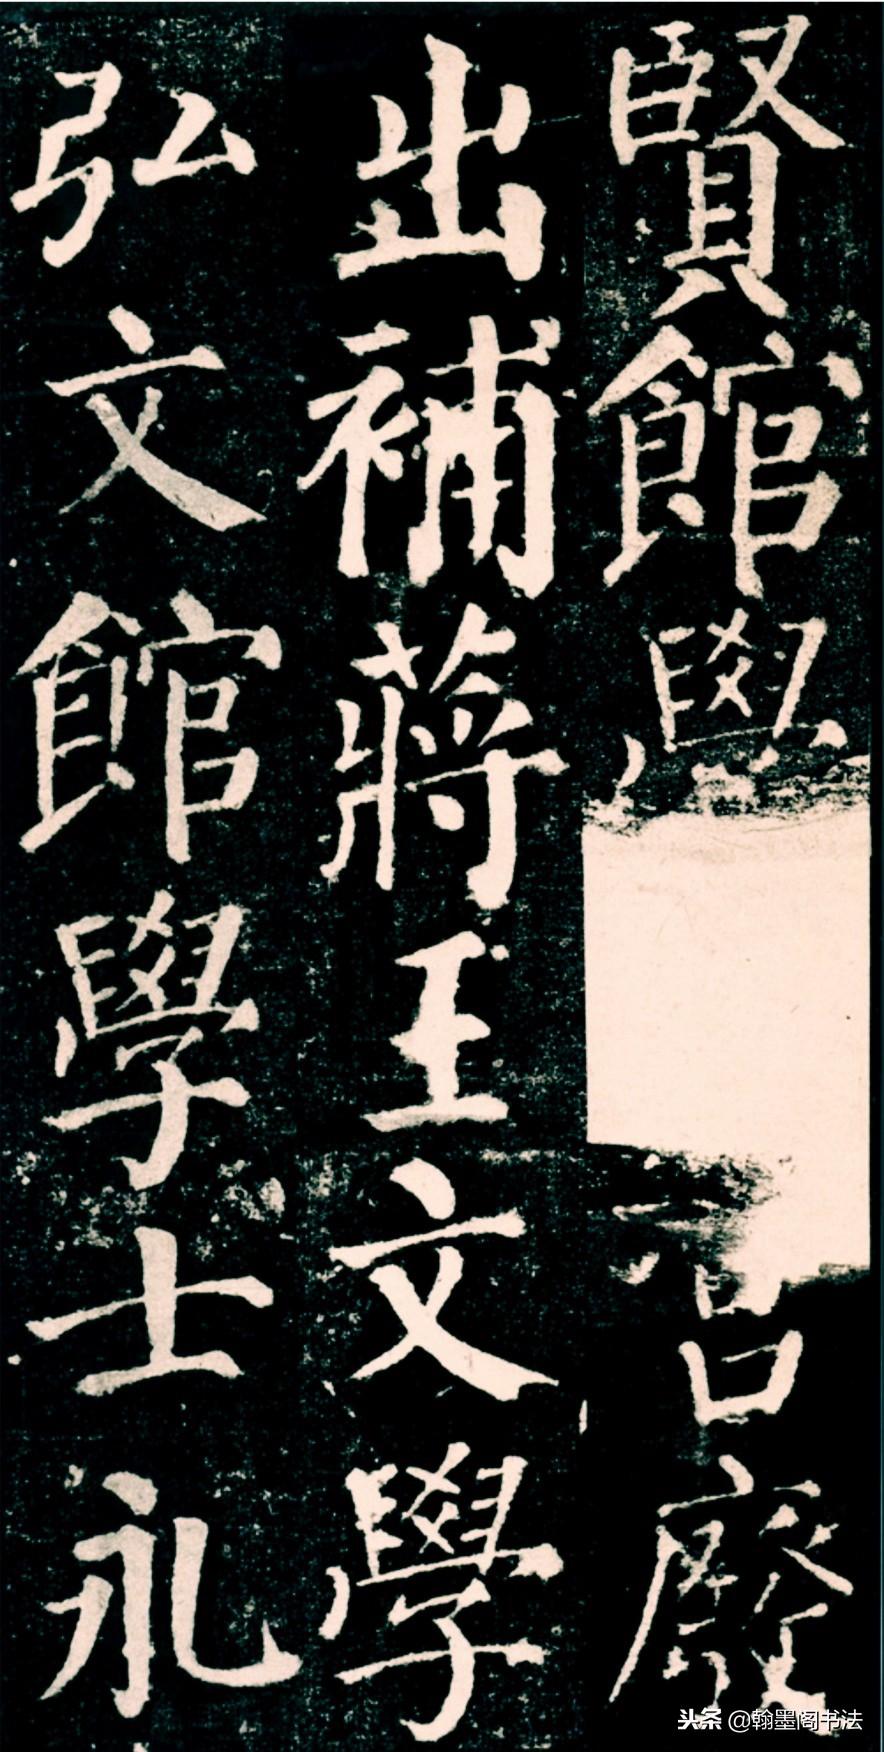 賢館學宮廢
出補蔣王文學
弘文館學士永
头条 @翰墨阁书法